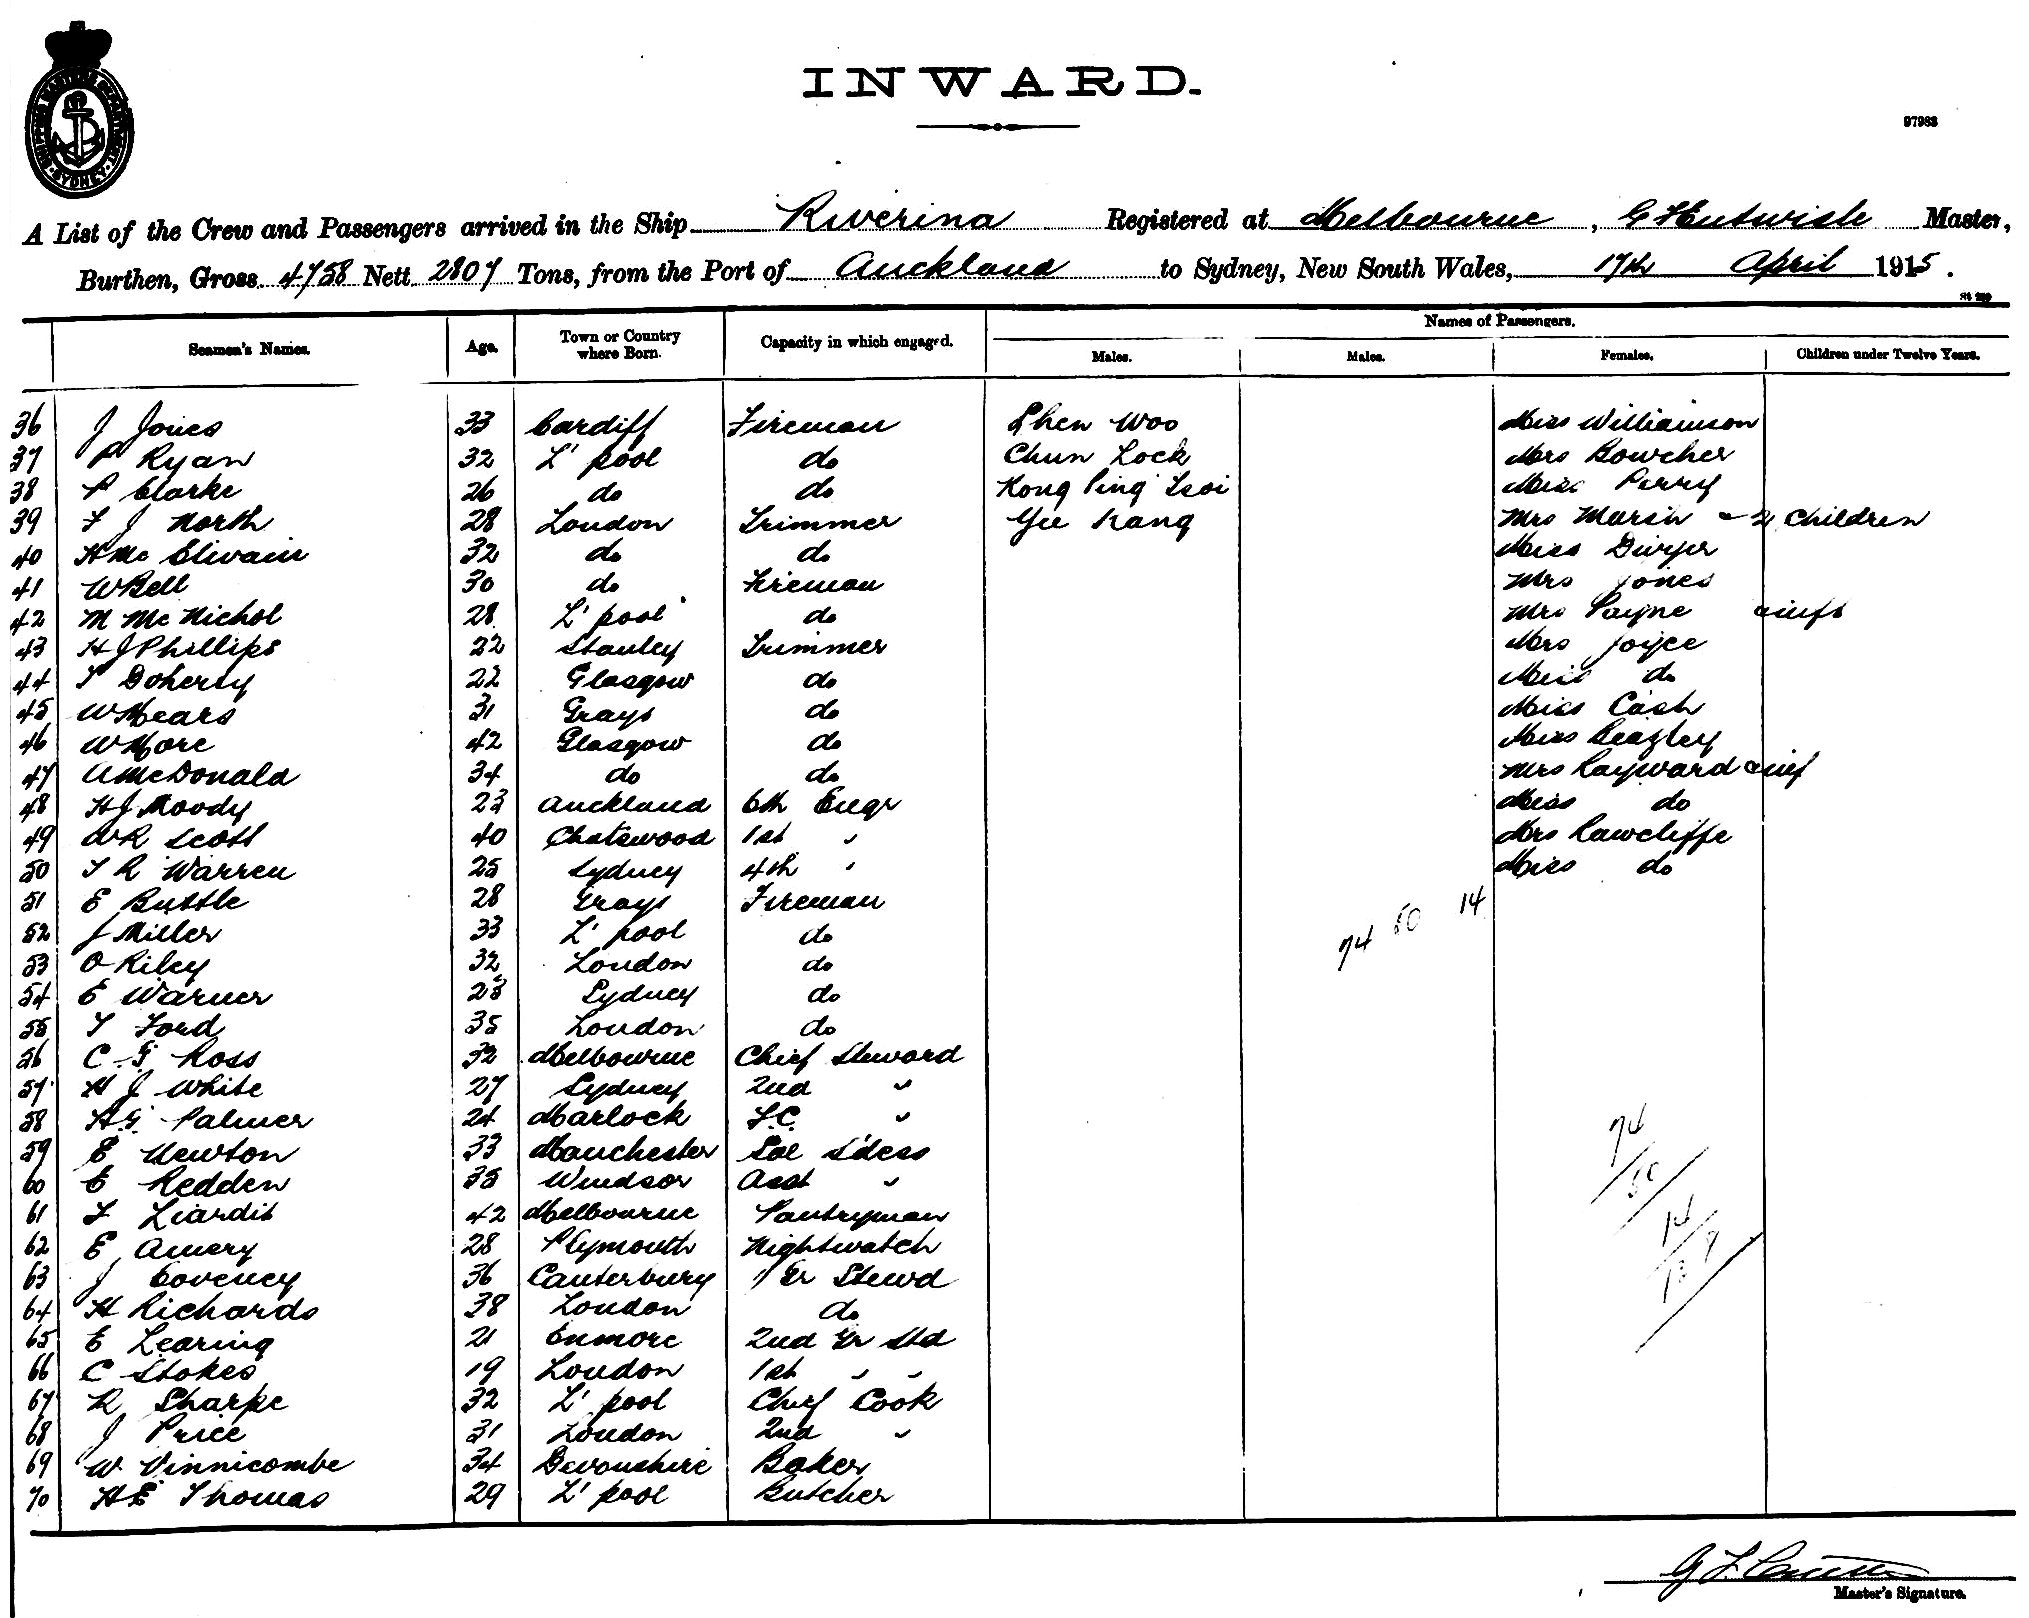 SHIPPING MASTER'S DEPARTMENT
SYDNEY
INWARD.
97983
A List of the Crew and Passengers arrived in the Ship Riverina Registered at Melbourne, G Entwisle Master,
Burthen, Gross 4758 Nett 2807 Tons, from the Port of Auckland to Sydney, New South Wales, 17th April 1915.
Seamen's Names. Age. Town or Country where Born. Capacity in which engaged. Names of Passengers.
Males. Males. Females. Children under Twelve Years.
36 J Jones 33 Cardiff Fireman Shen Woo Miss Williamson
37 P Ryan 32 L'pool do Chun Lock Mrs Bowcher
38 P Clarke 26 do do Hong Ping Tsoi Miss Perry
39 F J North 28 London Trimmer Yee Kang Mrs Marsh 2 Children
40 H Mc Elwain 32 do do Miss Dwyer
41 W Bell 30 do Fireman Mrs Jones
42 M Mc Nichol 28 L'pool do Mrs Payne & inft
43 H J Phillips 22 Stanley Trimmer Mrs Joyce
44 T Doherty 22 Glasgow do Miss do
45 W Mears 31 Grays do Miss Cash
46 W More 42 Glasgow do Miss Beazley
47 A McDonald 34 do do Mrs Rayward & inf
48 H J Moody 23 Auckland 6th Engr Miss do
49 W R Scott 40 Chatswood 1st " Mrs Rawcliffe
50 T R Warren 25 Sydney 4th " Miss do
51 E Buttle 28 Grays Fireman
74 50 14
52 J Miller 33 L'pool do
53 O Riley 32 London do
54 E Warner 28 Sydney do
55 T Ford 35 London do
56 C G Ross 32 Melbourne Chief Steward
57 H J White 27 Sydney 2nd "
58 H G Palmer 24 Marlock F.C. "
59 E Newton 33 Manchester Sal S'dess
60 E Redden 35 Windsor Asst "
61 F Liardit 42 Melbourne Pantryman
62 E Amery 28 Plymouth Nightwatch
63 J Coveney 36 Canterbury Gr Stewd
64 H Richards 38 London do
65 E Learing 21 Enmore 2nd Gr Std
66 C Stokes 19 London 1st " "
67 R Sharpe 32 L'pool Chief Cook
68 J Price 31 London 2nd "
69 W Vinnicombe 34 Devonshire Baker
70 H E Thomas 29 L'pool Butcher
74
14
Master's Signature.